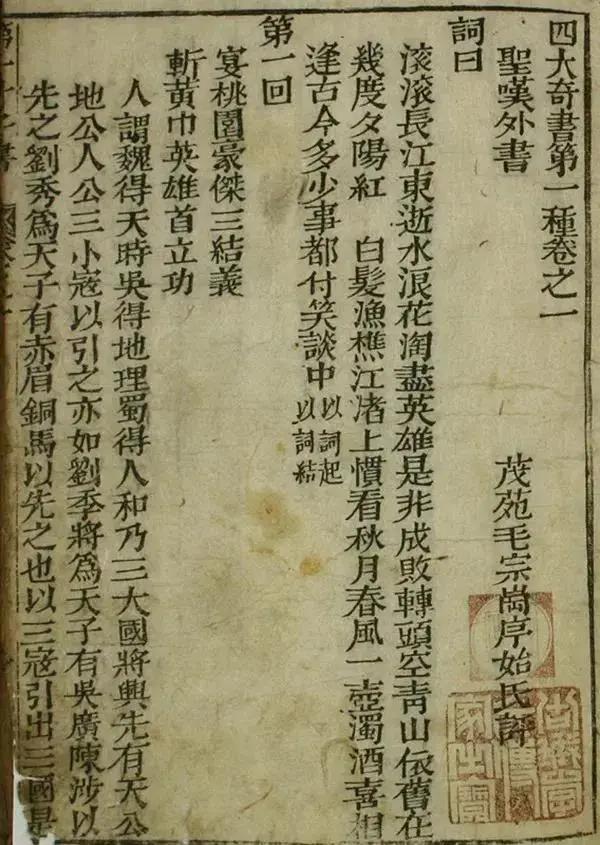 四大奇書第一種卷之一
聖嘆外書
茂苑毛宗崗序始氏評
詞曰
滾滾長江東逝水浪花淘盡英雄是非成敗轉頭空青山依舊在
幾度夕陽紅 白髮漁樵江渚上慣看秋月春風一壺濁酒喜相
逢古今多少事都付笑談中以詞起以詞結
第一回
宴桃園豪傑三結義
斬黃巾英雄首立功
人謂魏得天時吳得地理蜀得人和乃三大國將興先有天公
地公人公三小寇以引之亦如劉季將爲天子有吳廣陳涉以
先之劉秀爲天子有赤眉銅馬以先之也以三寇引出三國是